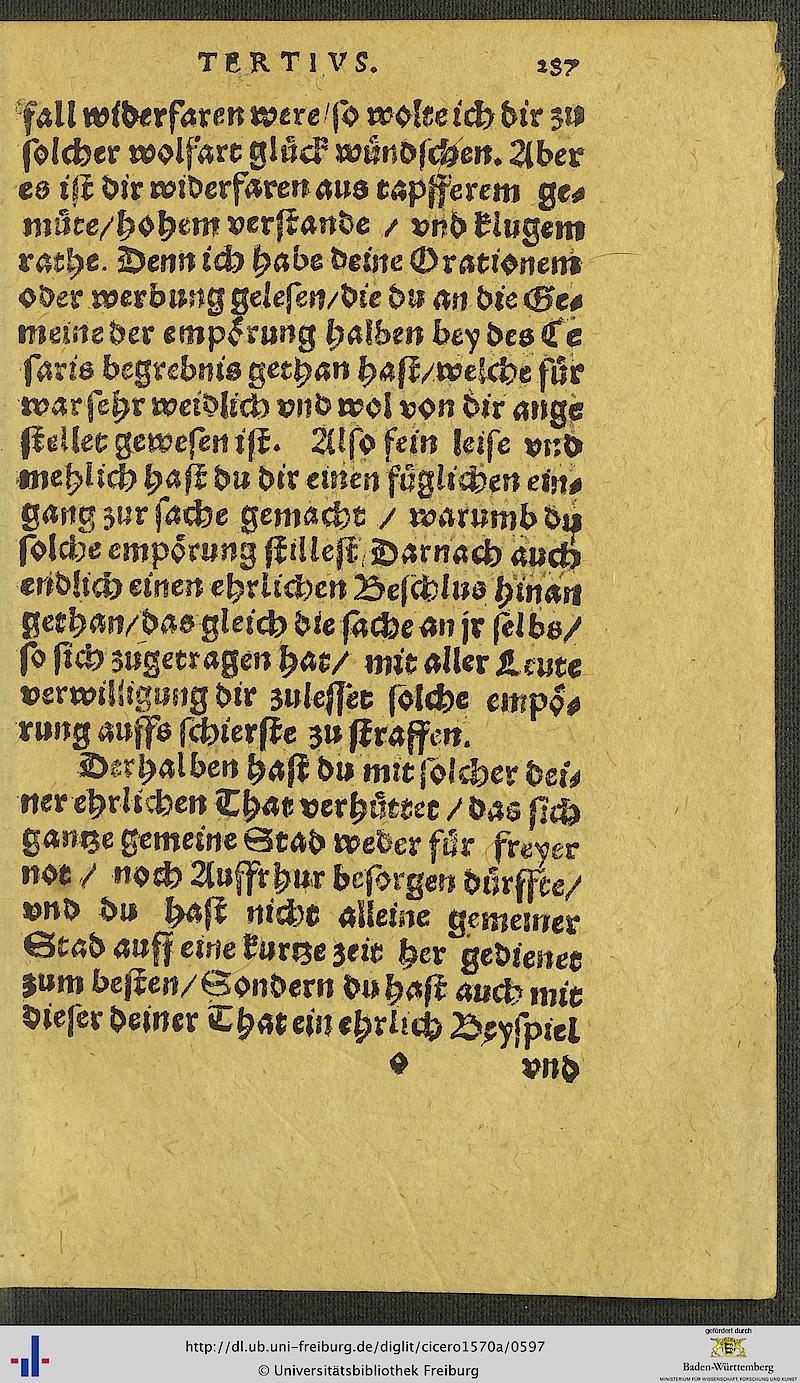 TERTIVS. 287
fall widerfaren were/so wolte ich dir zu
solcher wolfart glück wündschen. Aber
es ist dir widerfaren aus tapfferem ge-
müte/hohem verstande / vnd klugem
rathe. Denn ich habe deine Orationem
oder werbung gelesen/die du an die Ge-
meine der empörung halben bey des Ce
saris begrebnis gethan hast/welche für
war sehr weidlich vnd wol von dir ange
stellet gewesen ist. Also fein leise vnd
mehlich hast du dir einen füglichen ein-
gang zur sache gemacht / warumb du
solche empörung stillest/Darnach auch
endlich einen ehrlichen Beschlus hinan
gethan/das gleich die sache an jr selbs/
so sich zugetragen hat/ mit aller Leute
verwilligung dir zulesset solche empö-
rung auffs schierste zu straffen.
Derhalben hast du mit solcher dei-
ner ehrlichen That verhüttet / das sich
gantze gemeine Stad weder für freyer
not / noch Auffrhur besorgen dürffte/
vnd du hast nicht alleine gemeiner
Stad auff eine kurtze zeit her gedienet
zum besten/Sondern du hast auch mit
dieser deiner That ein ehrlich Beyspiel
vnd
http://dl.ub.uni-freiburg.de/diglit/cicero1570a/0597
© Universitätsbibliothek Freiburg
gefördert durch
Baden-Württemberg
MINISTERIUM FÜR WISSENSCHAFT, FORSCHUNG UND KUNST